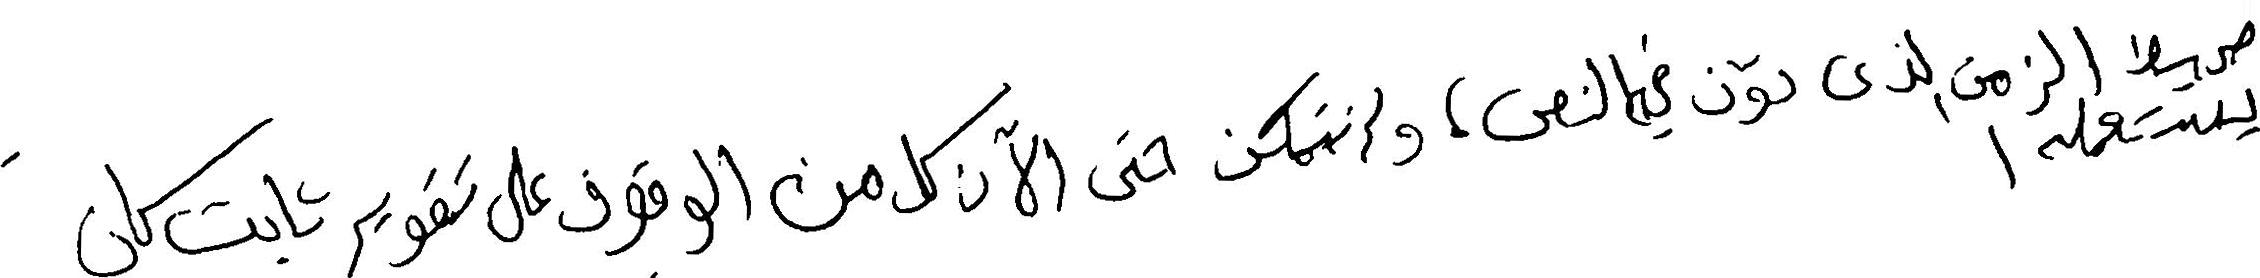 الزمن الذى دوّن فيه النص، ولم نتمكن حتى الآن كل من الوقوف على تقويم ثابت كان
يستعمله ا